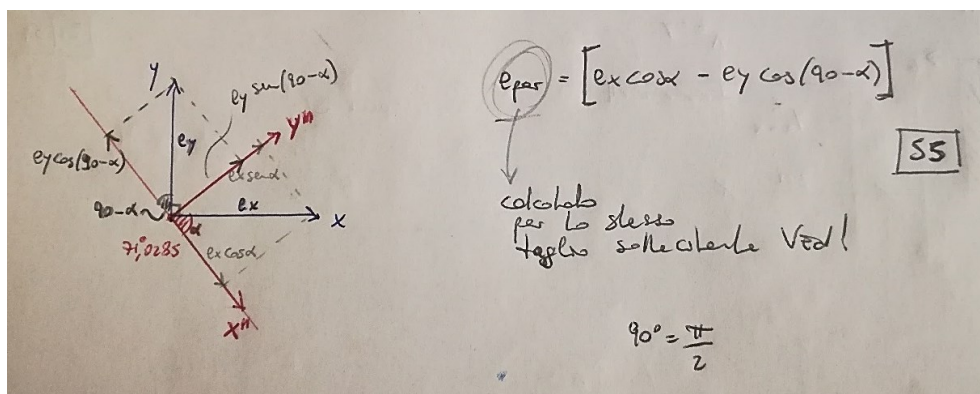 y
ey sen(90-α)
y"
ey
ey cos(90-α)
ex senα
90-α
ex
x
α
71°,0285
ex cosα
x"
epar = [ex cosα - ey cos(90-α)]
55
calcolato
per lo stesso
taglio sollecitante VEd!
90° = π/2